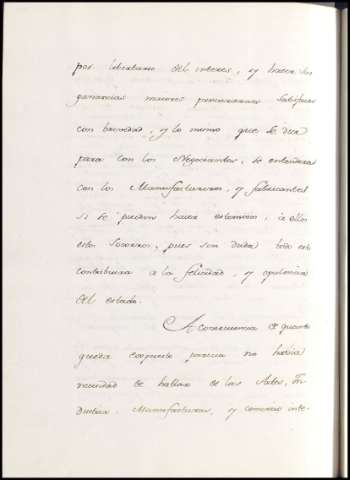 por libertarse del interes, y hacer sus
ganancias mayores procurarian satisfacer
con brevedad, y lo mismo que se dice
para con los Negociantes, se entenderá
con los Manufactureros, y fabricantes
si se pueden hacer estensivos, á ellos
estos Socorros, pues sin duda todo esto
contribuira a la felicidad, y opulencia
del estado.
A consecuencia de quanto
queda expuesto parecia no habia
necesidad de hablar de las Artes, In-
dustria, Manufacturas, y comercio inte-